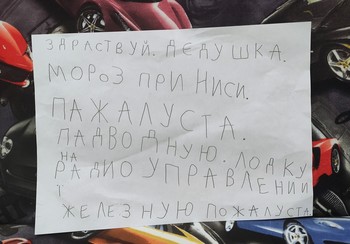 ЗДРАСТВУЙ. ДЕДУШКА.
МОРОЗ ПРИ НИСИ.
ПАЖАЛУСТА.
ПАДВОДНУЮ. ЛОДКУ
НА
РАДИО УПРАВЛЕНИИ
Т
ЖЕЛЕЗНУЮ ПОЖАЛУСТА